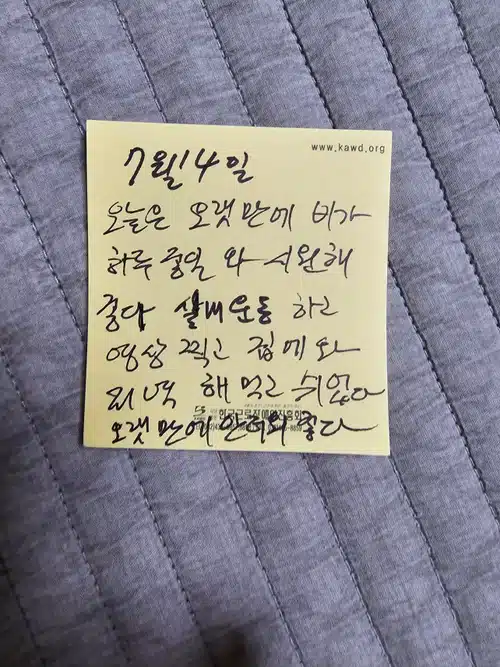 www.kawd.org
7월14일
오늘은 오랫만에 비가
하루 종일 와 시원해
좋다 실내운동 하고
영상 찍고 집에 와
저녁 해 먹고 쉬었다
오랫만에 안 좋다